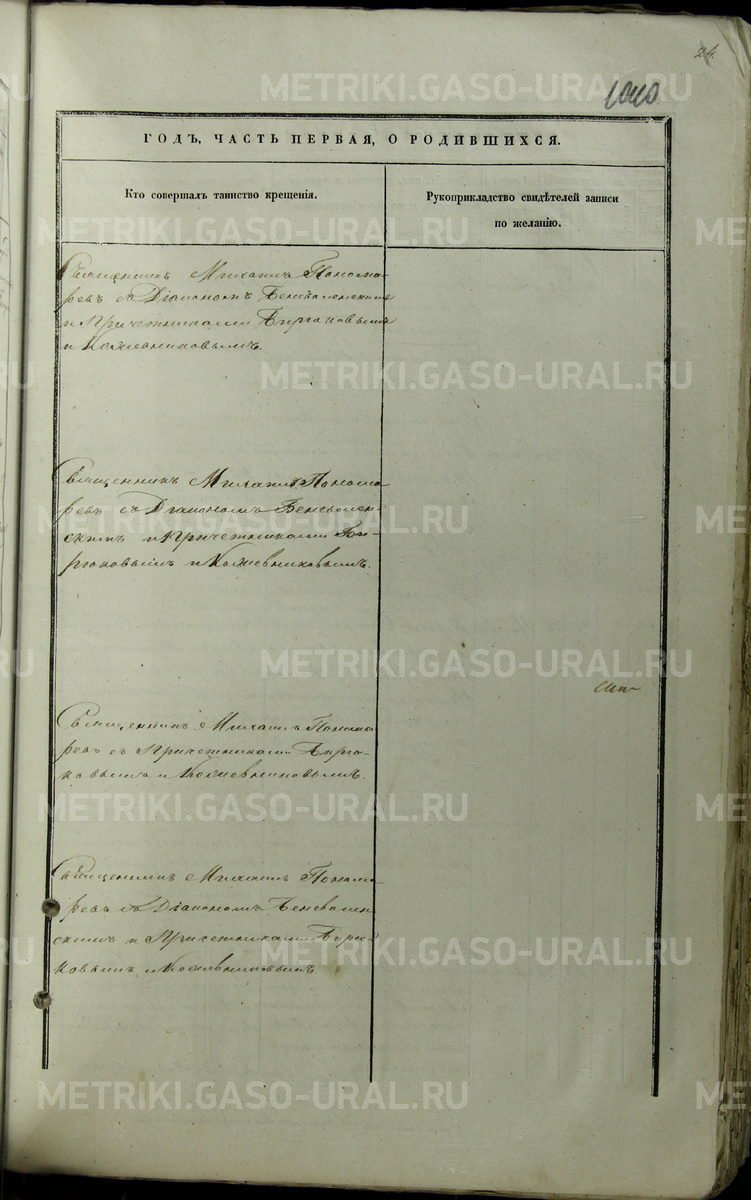 24.
1040
ГОДЪ, ЧАСТЬ ПЕРВАЯ, О РОДИВШИХСЯ.
Кто совершалъ таинство крещенія.
Рукоприкладство свидѣтелей записи
по желанію.
Священникъ Михаилъ Понома-
ревъ съ Діакономъ Беневоленскимъ
и Причетниками
и Кожевниковымъ.
Священникъ Михаилъ Понома
ревъ съ Діакономъ Беневолен-
скимъ и Причетниками
и Кожевниковымъ.
Священникъ Михаилъ Понома
ревъ съ Причетниками
ковымъ и Кожевниковымъ.
Священникъ Михаилъ Понома-
ревъ съ Діакономъ Беневолен
скимъ и Причетниками
ковымъ и Кожевниковымъ
METRIKI.GASO-URAL.RU